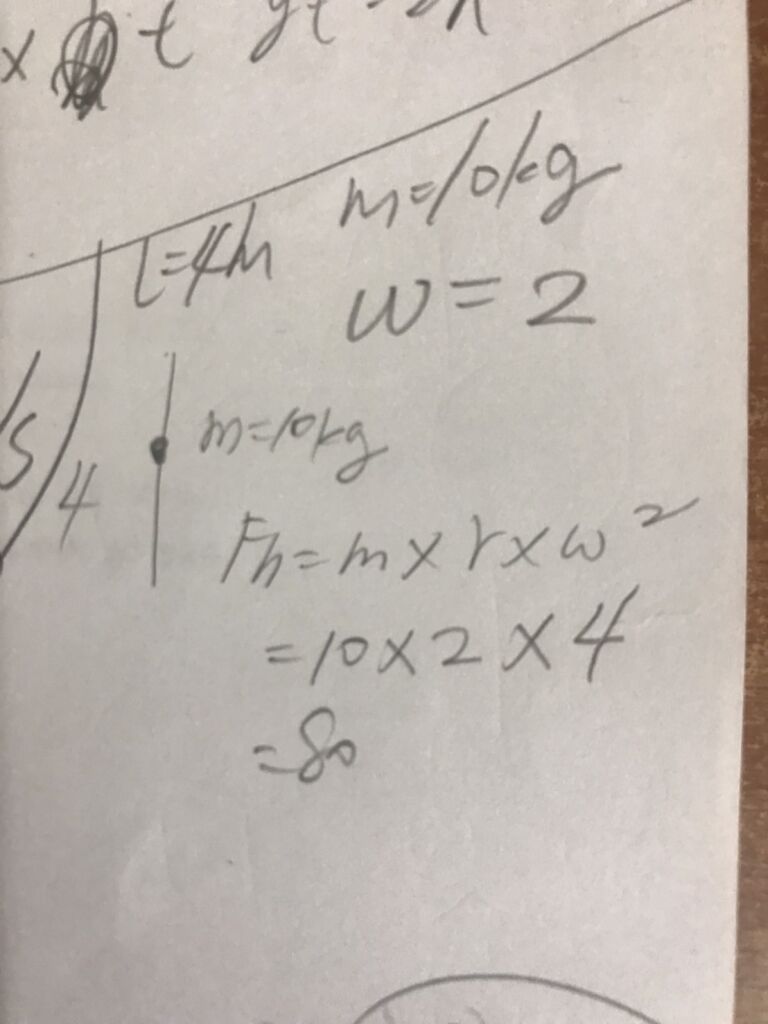 x t yt
L=4m m=10kg
w=2
m=10kg
4
Fn=m×r×w²
=10×2×4
=80